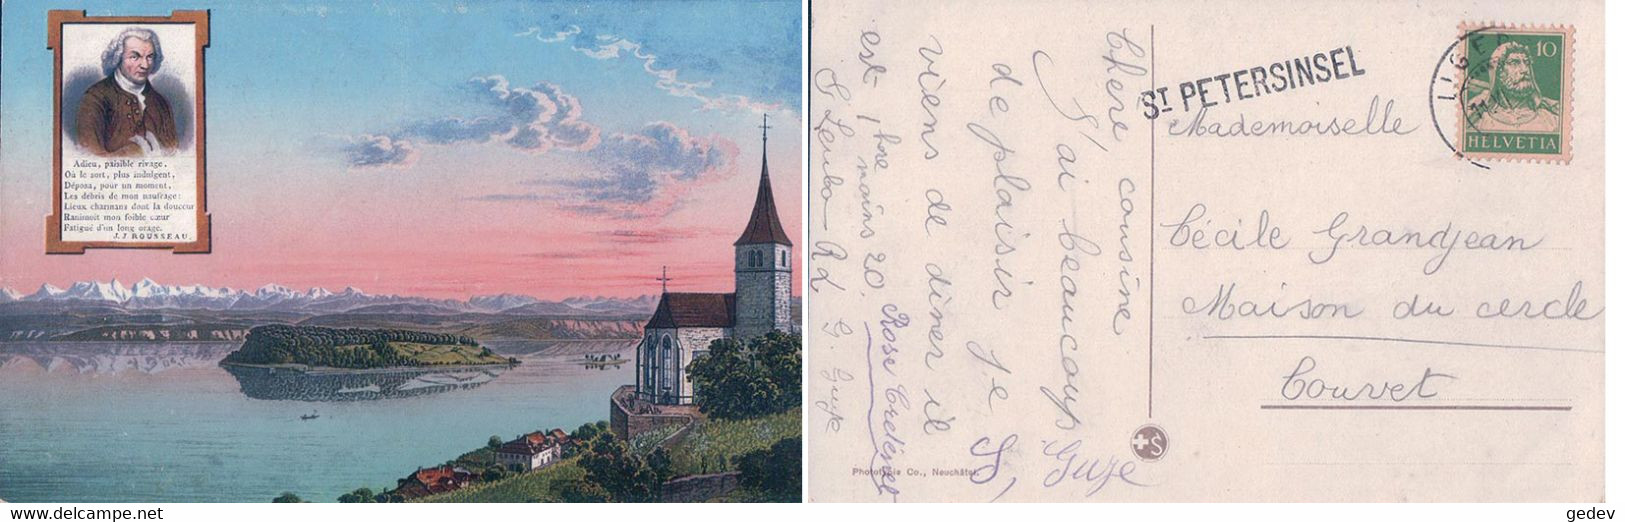 Adieu, paisible rivage,
Où le sort, plus indulgent,
Déposa, pour un moment,
Les débris de mon naufrage:
Lieux charmans dont la douceur
Ranimoit mon foible cœur
Fatigué d'un long orage.
J. J. ROUSSEAU.
Chère cousine
J'ai beaucoup
de plaisir je
viens de diner il
est 1 hre moins 20.
Rose
ST PETERSINSEL
LIGER
10
HELVETIA
Mademoiselle
Cécile Grandjean
Maison du cercle
Couvet
Phototypie Co., Neuchâtel.
gedev